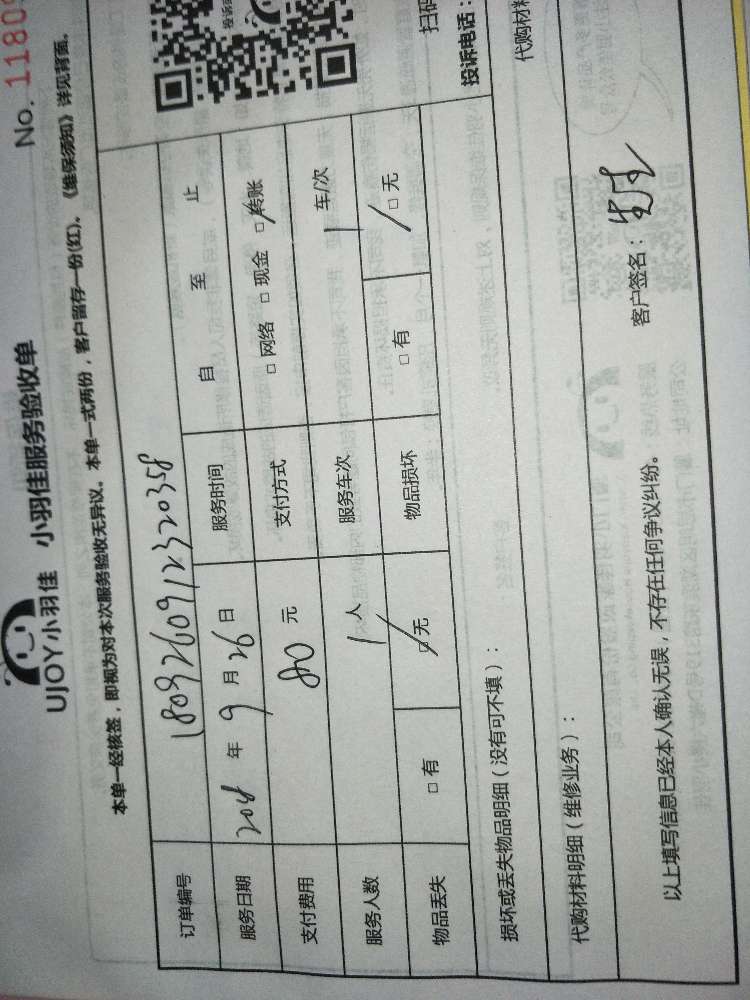 UJOY小羽佳 小羽佳服务验收单
No. 1180
本单一经核签，即视为对本次服务验收无异议。本单一式两份，客户留存一份(红)。《维保须知》详见背面。
订单编号 1809260912320358
服务日期 2018 年 9 月 26 日 服务时间 自 至 止
支付费用 80 元 支付方式 □ 网络 □ 现金 □ 转账
服务人数 1 人 服务车次 1 车/次
物品丢失 □ 有 □ 无 物品损坏 □ 有 □ 无
扫码
投诉电话：
损坏或丢失物品明细（没有可不填）：
代购材料明细（维修业务）：
代购材料
以上填写信息已经本人确认无误，不存在任何争议纠纷。
客户签名：